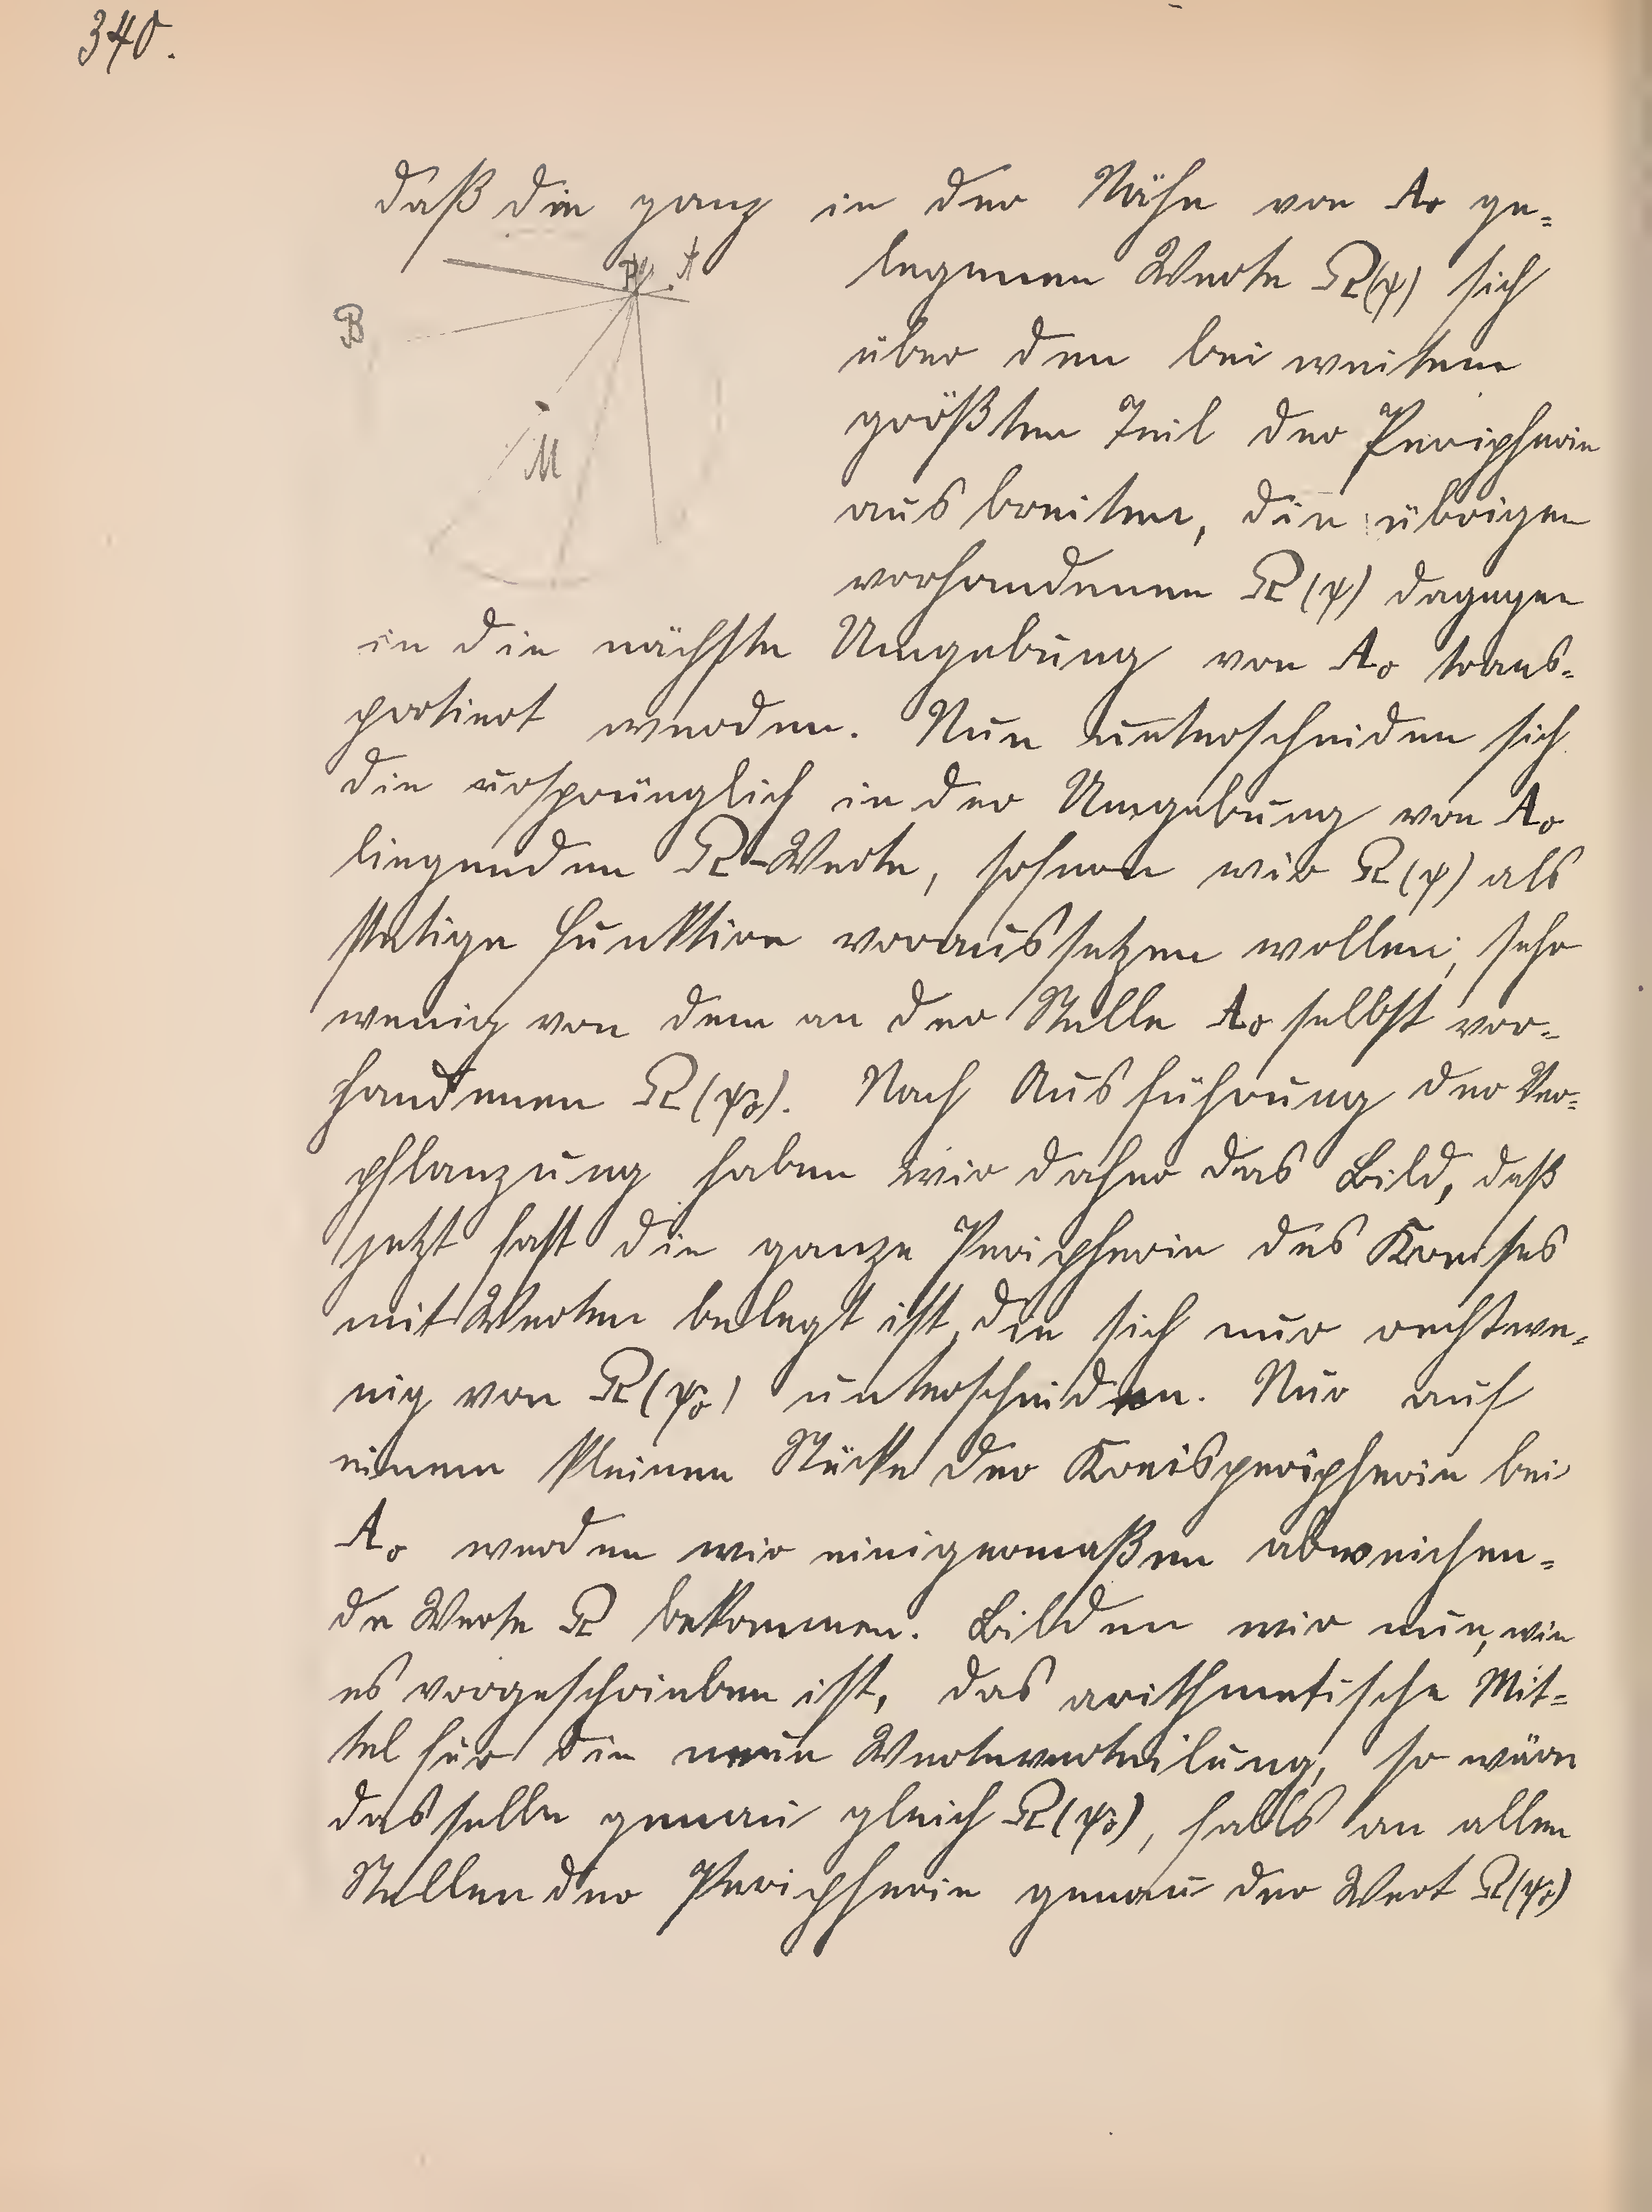 340.
daß die ganz in der Nähe von A₀ ge-
legenen Werte Ω(ψ) sich
über den bei weitem
größten Teil der Peripherie
ausbreiten, die übrigen
vorhandenen Ω(ψ) dagegen
B
A
M
in die nächste Umgebung von A₀ trans-
portiert werden. Nun unterscheiden sich
die ursprünglich in der Umgebung von A₀
liegenden Ω-Werte, sofern wir Ω(ψ) als
stetige Funktion voraussetzen wollen, sehr
wenig von dem an der Stelle A₀ selbst vor-
handenen Ω(ψ₀). Nach Ausführung der Ver-
pflanzung haben wir daher das Bild, daß
jetzt fast die ganze Peripherie des Kreises
mit Werten belegt ist, die sich nur recht we-
nig von Ω(ψ₀) unterscheiden. Nur auf
einem kleinen Stücke der Kreisperipherie bei
A₀ werden wir einigermaßen abweichen-
de Werte Ω bekommen. Bilden wir nun, wie
es vorgeschrieben ist, das arithmetische Mit-
tel für die neue Werteverteilung, so wäre
dasselbe genau gleich Ω(ψ₀), falls an allen
Stellen der Peripherie genau der Wert Ω(ψ₀)